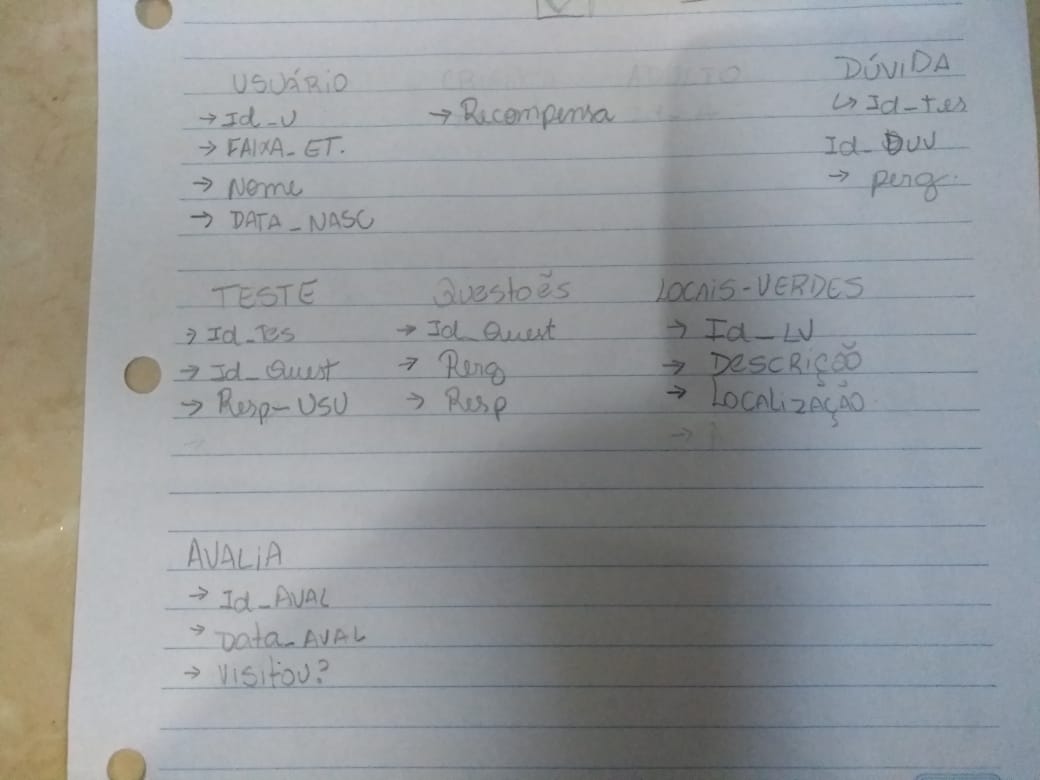 USUÁRIO
→ Id_U
→ FAIXA_ET.
→ Nome
→ DATA_NASC
→ Recompensa
DÚVIDA
↳ Id_tes
Id_DUV
→ perg.
TESTE
→ Id_Tes
→ Id_Quest
→ Resp-USU
Questões
→ Id_Quest
→ Perg
→ Resp
LOCAIS-VERDES
→ Id_LV
→ DESCRIÇÃO
→ LOCALIZAÇÃO
→
AVALIA
→ Id_AVAL
→ Data_AVAL
→ Visitou?